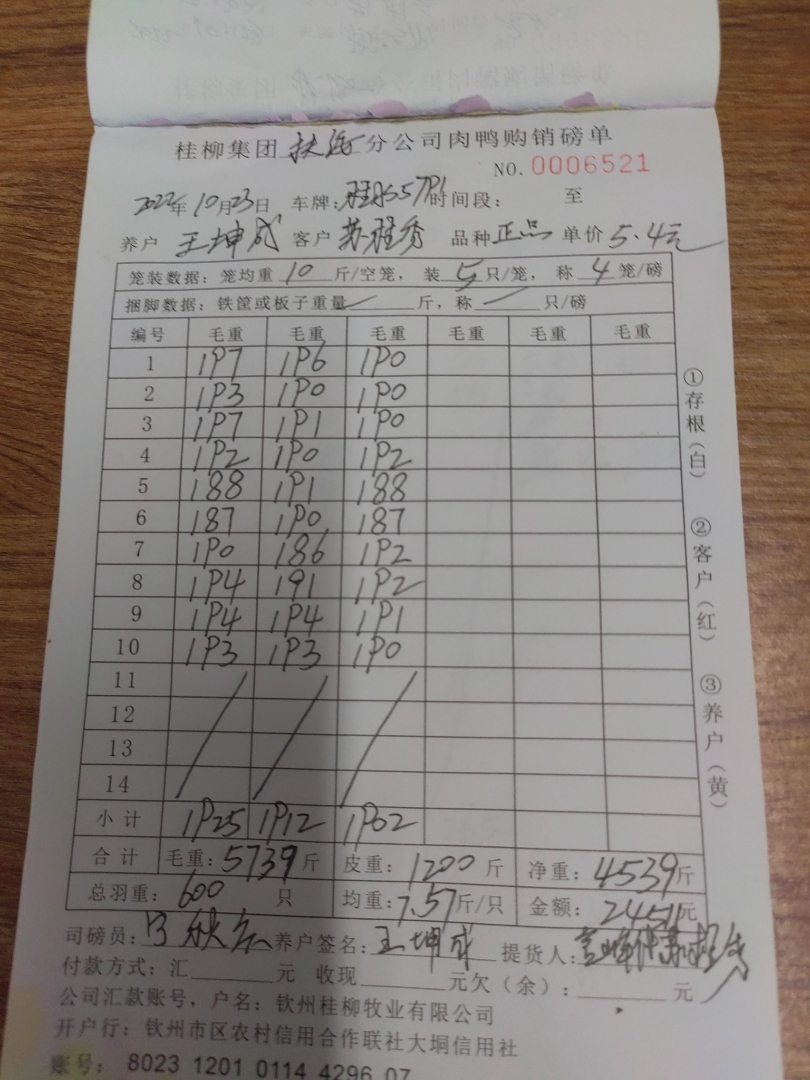 桂柳集团 扶绥 分公司肉鸭购销磅单
NO. 0006521
2022年10月23日 车牌: 时间段: 至
养户 王坤成 客户 苏程秀 品种 正品 单价 5.4元
笼装数据: 笼均重 10 斤/空笼, 装 5 只/笼, 称 4 笼/磅
捆脚数据: 铁筐或板子重量 斤, 称 只/磅
编号 毛重 毛重 毛重 毛重 毛重 毛重
1 197 196 190
2 193 190 190
3 197 191 190
4 192 190 192
5 188 191 188
6 187 190 187
7 190 186 192
8 194 191 192
9 194 194 191
10 193 193 190
11
12
13
14
小计 1925 1912 1902
合计 毛重: 5739 斤 皮重: 1200 斤 净重: 4539 斤
总羽重: 600 只 均重: 7.57 斤/只 金额: 24511 元
司磅员: 养户签名: 王坤成 提货人:
付款方式: 汇 元 收现 元 欠(余): 元
公司汇款账号, 户名: 钦州桂柳牧业有限公司
开户行: 钦州市区农村信用合作联社大垌信用社
账号: 8023 1201 0114 4296 07
①存根(白)
②客户(红)
③养户(黄)